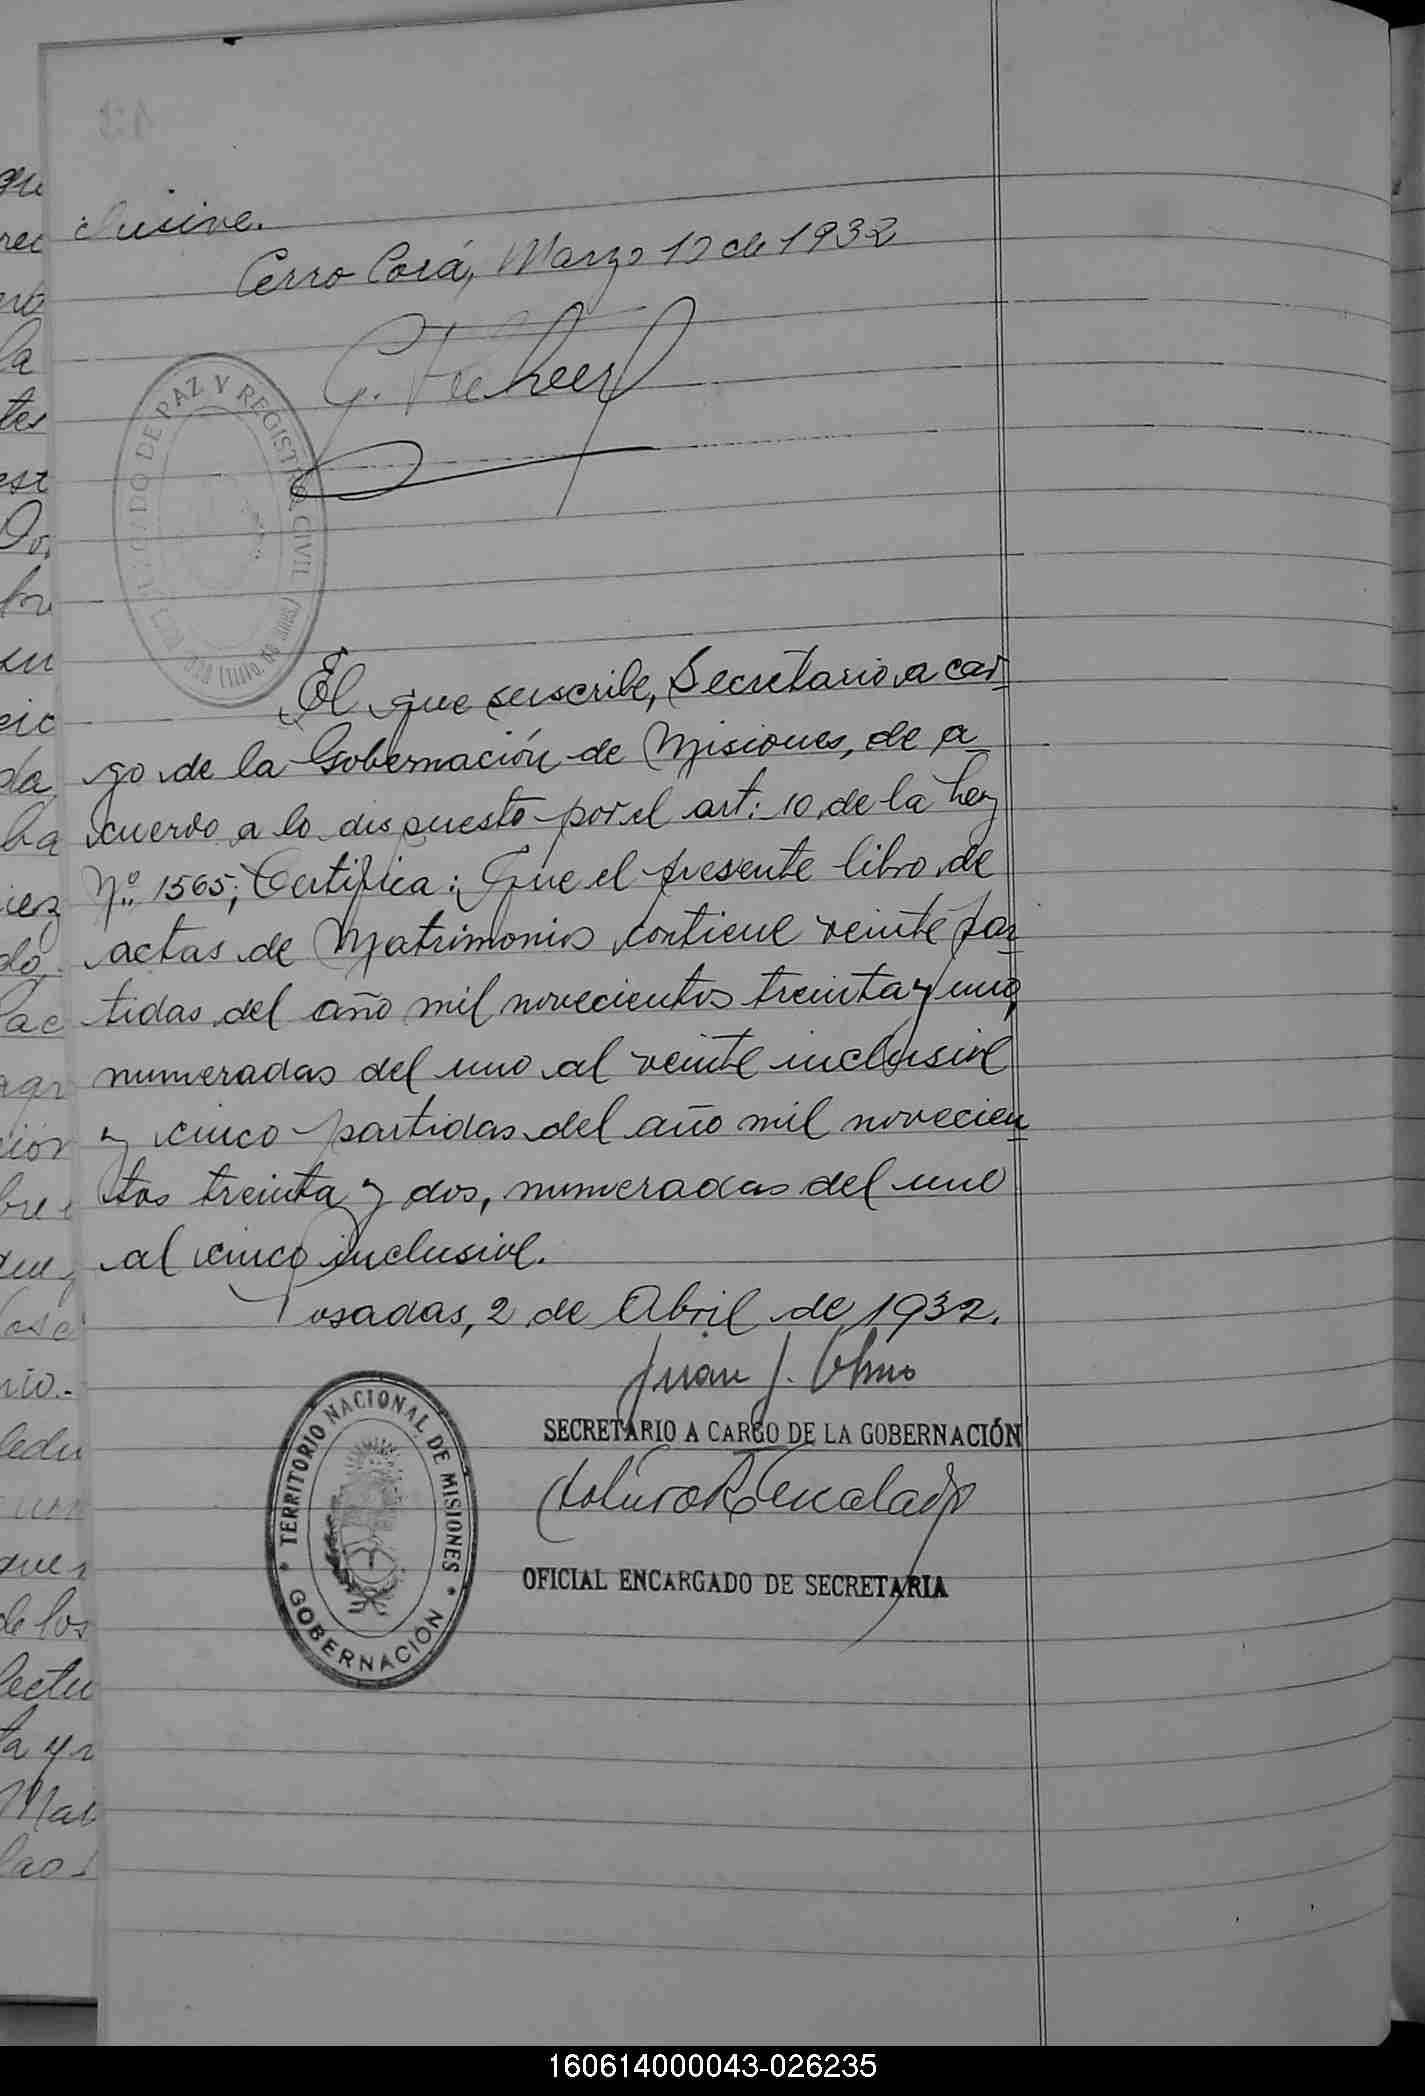 clusive.
Cerro Corá, Marzo 12 de 1932
JUZGADO DE PAZ Y REGISTRO CIVIL
El que suscribe, Secretario a car
go de la Gobernación de Misiones, de a
cuerdo a lo dispuesto por el art: 10 de la Ley
Nº 1565; Certifica: Que el presente libro de
actas de Matrimonios contiene veinte par
tidas del año mil novecientos treinta y uno,
numeradas del uno al veinte inclusive
y cinco partidas del año mil novecien
tos treinta y dos, numeradas del uno
al cinco inclusive.
Posadas, 2 de Abril de 1932.
Juan J. Olmo
SECRETARIO A CARGO DE LA GOBERNACIÓN
OFICIAL ENCARGADO DE SECRETARIA
TERRITORIO NACIONAL DE MISIONES
GOBERNACIÓN
160614000043-026235